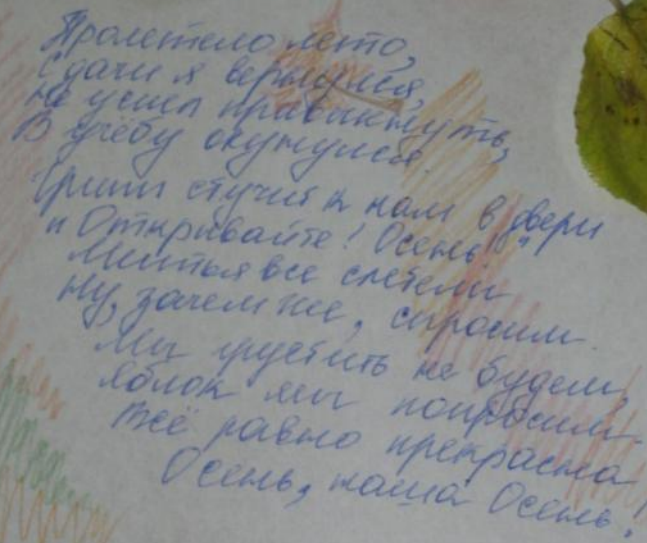 Пролетело лето,
С дачи я вернулся,
Не успел привыкнуть,
В учёбу окунулся.
Грипп стучит к нам в двери
"Открывайте! Осень!"
Листья все слетели
Ну, зачем же, спросим.
Мы грустить не будем,
Яблок мы попросим.
Всё равно прекрасна
Осень, наша Осень!